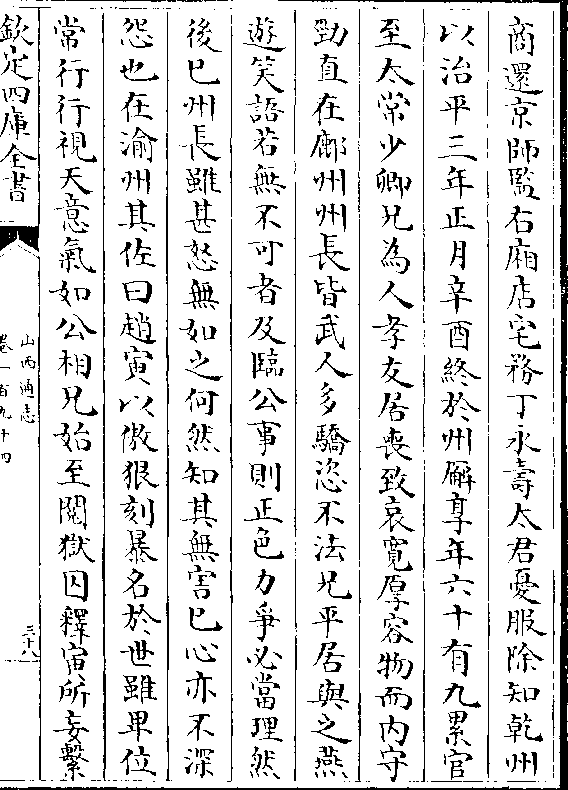 商還京師監右廂店宅務丁永壽太君憂服除知乾州
以治平三年正月辛酉終於州廨享年六十有九累官
至太常少卿兄為人孝友居喪致哀寛厚容物而内守
勁直在鄜州州長皆武人多驕恣不法兄平居與之燕
遊笑語若無不可者及臨公事則正色力爭必當理然
後已州長雖甚怒無如之何然知其無害已心亦不深
怨也在渝州其佐曰趙寅以傲狠刻暴名於世雖畀位
常行行視天意氣如公相兄始至閱獄囚釋寅所妄繫
欽定四庫全書
山西通志
卷一百九十四
三十八